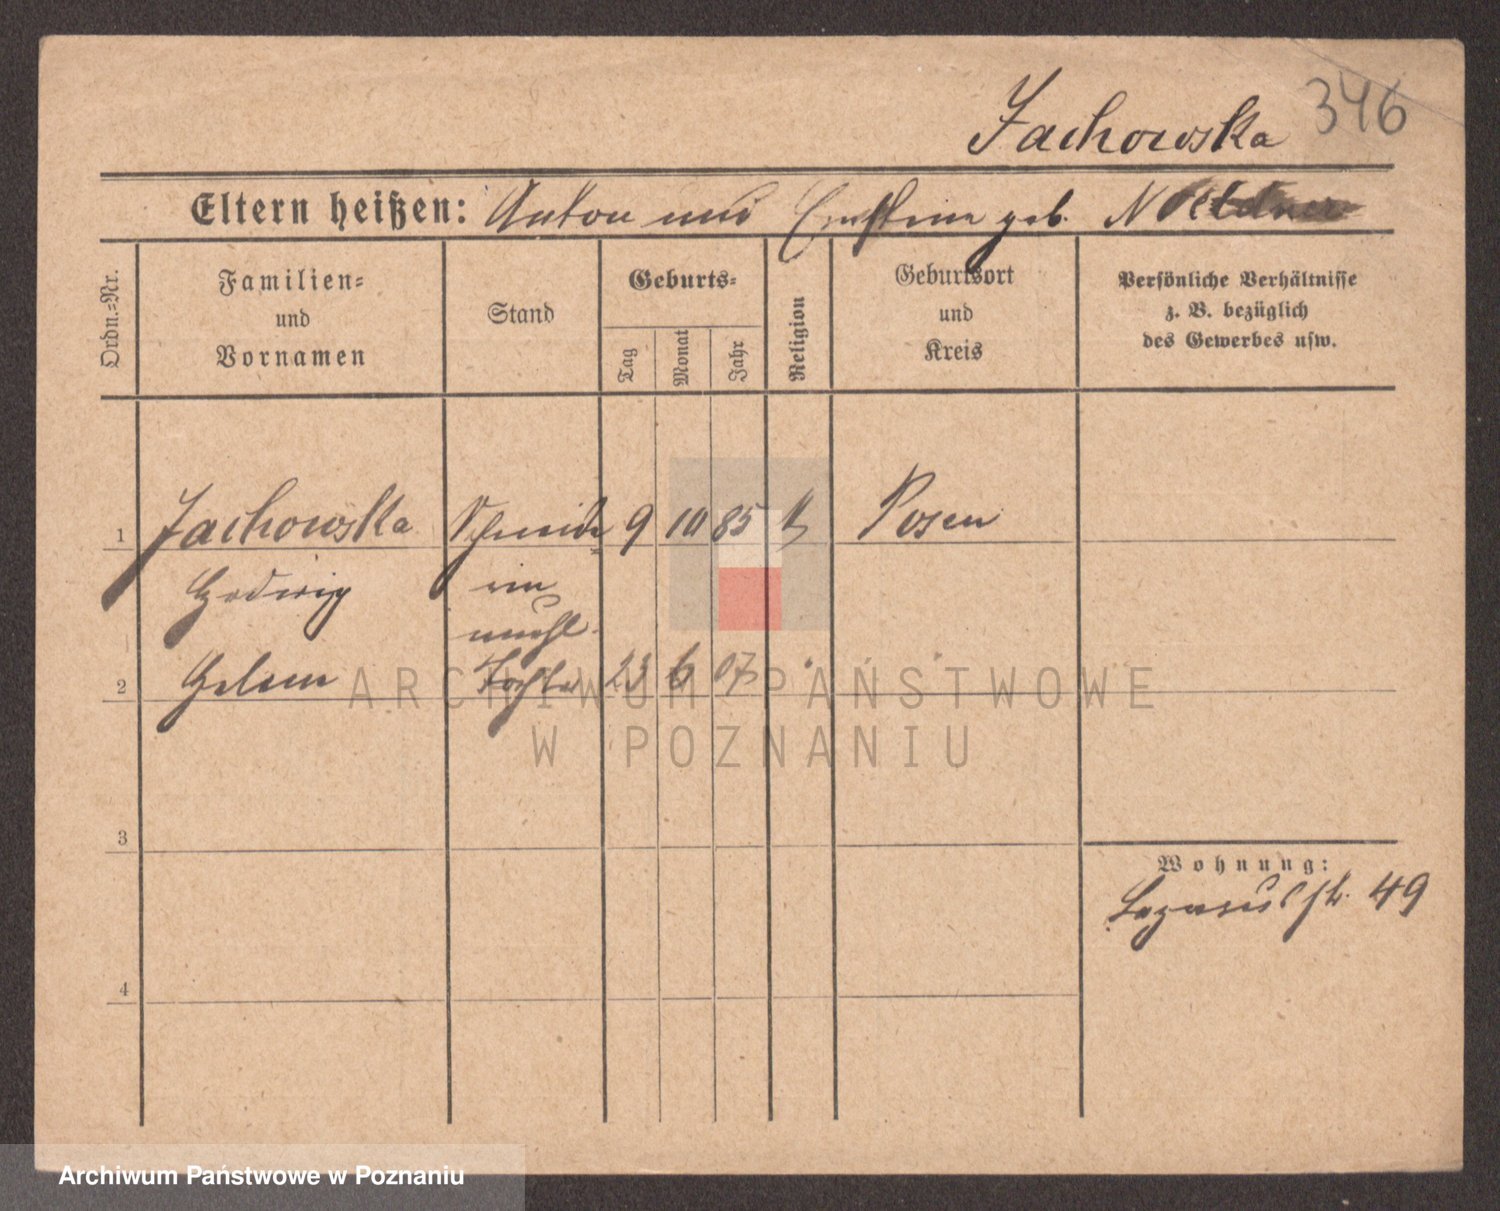 Jachowska 346
Eltern heißen: Anton und Ernstine geb. Noeldner
Ordn.=Nr.
Familien=
und
Vornamen
Stand
Geburts=
Tag
Monat
Jahr
Religion
Geburtsort
und
Kreis
Persönliche Verhältnisse
z. B. bezüglich
des Gewerbes usw.
1 Jachowska Schneide 9 10 85 k Posen
Hedwig rin
unehl.
2 Helene Tochter 23 6 07 " " "
3
4
Wohnung:
Lazarusstr. 49
ARCHIWUM PAŃSTWOWE
W POZNANIU
Archiwum Państwowe w Poznaniu